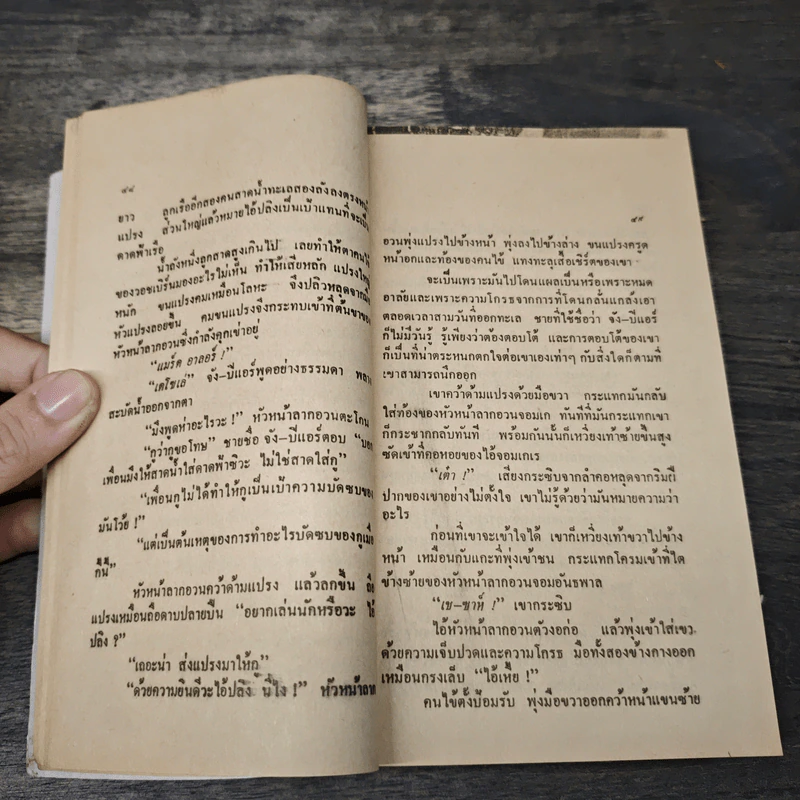 ๔๘
ยาว ลูกเรืออีกสองคนสาดน้ำทะเลสองถังลงตรงหน้า
แปรง ส่วนใหญ่แล้วหมายไอ้ปลิงเป็นเป้าแทนที่จะเป็น
ดาดฟ้าเรือ
น้ำถังหนึ่งถูกสาดสูงเกินไป เลยทำให้ตาคนไข้
ของวอชเบิร์นมองอะไรไม่เห็น ทำให้เสียหลัก แปรงใหญ่
หนัก ขนแปรงคมเหมือนโลหะ จึงปลิวหลุดจากมือ
หัวแปรงลอยขึ้น คมขนแปรงจึงกระทบเข้าที่ต้นขาของ
หัวหน้าลากอวนซึ่งกำลังคุกเข่าอยู่
“แมร์ด อาลอร์ !”
“เดโซเล่” จัง-ปีแอร์พูดอย่างธรรมดา พลาง
สะบัดน้ำออกจากตา
“มึงพูดห่าอะไรวะ !” หัวหน้าลากอวนตะโกน
“กูว่ากูขอโทษ” ชายชื่อ จัง-ปีแอร์ตอบ “บอก
เพื่อนมึงให้สาดน้ำใส่ดาดฟ้าซิวะ ไม่ใช่สาดใส่กู”
“เพื่อนกูไม่ได้ทำให้กูเป็นเป้าความบัดซบของ
มันโว้ย !”
“แต่เป็นต้นเหตุของการทำอะไรบัดซบของกูเมื่อ
กี้นี้”
หัวหน้าลากอวนคว้าด้ามแปรง แล้วลุกขึ้น ถือ
แปรงเหมือนถือดาบปลายปืน “อยากเล่นนักหรือวะ ไอ้
ปลิง ?”
“เถอะน่า ส่งแปรงมาให้กู”
“ด้วยความยินดีวะไอ้ปลิง นี่ไง !” หัวหน้าลาก
๔๙
อวนพุ่งแปรงไปข้างหน้า พุ่งลงไปข้างล่าง ขนแปรงครูด
หน้าอกและท้องของคนไข้ แทงทะลุเสื้อเชิร์ตของเขา
จะเป็นเพราะมันไปโดนแผลเป็นหรือเพราะหมด
อาลัยและเพราะความโกรธจากการที่โดนกลั่นแกล้งเอา
ตลอดเวลาสามวันที่ออกทะเล ชายที่ใช้ชื่อว่า จัง-ปีแอร์
ก็ไม่มีวันรู้ รู้เพียงว่าต้องตอบโต้ และการตอบโต้ของเขา
ก็เป็นที่น่าตระหนกตกใจต่อเขาเองเท่าๆ กับสิ่งใดก็ตามที่
เขาสามารถนึกออก
เขาคว้าด้ามแปรงด้วยมือขวา กระแทกมันกลับ
ใส่ท้องของหัวหน้าลากอวนจอมเก ทันทีที่มันกระแทกเขา
ก็กระชากกลับทันที พร้อมกันนั้นก็เหวี่ยงเท้าซ้ายขึ้นสูง
ซัดเข้าที่คอหอยของไอ้จอมเกเร
“เต๋า !” เสียงกระซิบจากลำคอหลุดจากริมฝี
ปากของเขาอย่างไม่ตั้งใจ เขาไม่รู้ด้วยว่ามันหมายความว่า
อะไร
ก่อนที่เขาจะเข้าใจได้ เขาก็เหวี่ยงเท้าขวาไปข้าง
หน้า เหมือนกับแกะที่พุ่งเข้าชน กระแทกโครมเข้าที่ไต
ข้างซ้ายของหัวหน้าลากอวนจอมอันธพาล
“เข-ซาห์ !” เขากระซิบ
ไอ้หัวหน้าลากอวนตัวงอก่อ แล้วพุ่งเข้าใส่เขา
ด้วยความเจ็บปวดและความโกรธ มือทั้งสองข้างกางออก
เหมือนกรงเล็บ “ไอ้เหี้ย !”
คนไข้ตั้งป้อมรับ พุ่งมือขวาออกคว้าหน้าแขนซ้าย